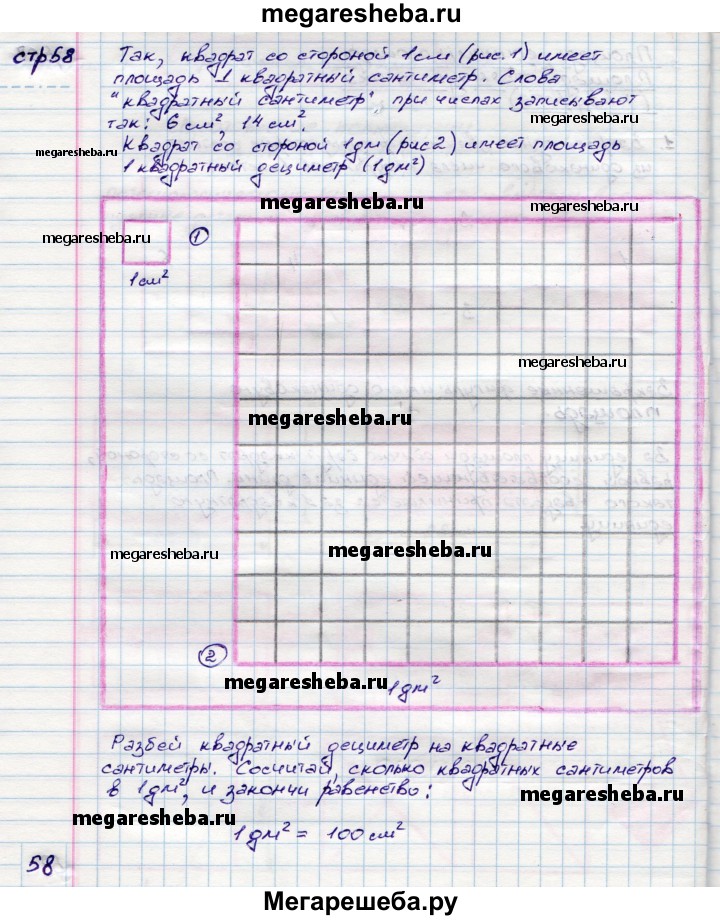 megaresheba.ru
стр58
Так, квадрат со стороной 1см (рис. 1) имеет
площадь 1 квадратный сантиметр. Слова
"квадратный сантиметр", при числах записывают
так: 6 см², 14 см².
megaresheba.ru
megaresheba.ru
Квадрат со стороной 1дм (рис 2) имеет площадь
1 квадратный дециметр (1дм²)
megaresheba.ru
megaresheba.ru
megaresheba.ru
1
1см²
megaresheba.ru
megaresheba.ru
megaresheba.ru
megaresheba.ru
2
megaresheba.ru
1дм²
Разбей квадратный дециметр на квадратные
сантиметры. Сосчитай, сколько квадратных сантиметров
в 1дм², и закончи равенство:
megaresheba.ru
megaresheba.ru
1дм² = 100см²
58
Мегарешеба.ру